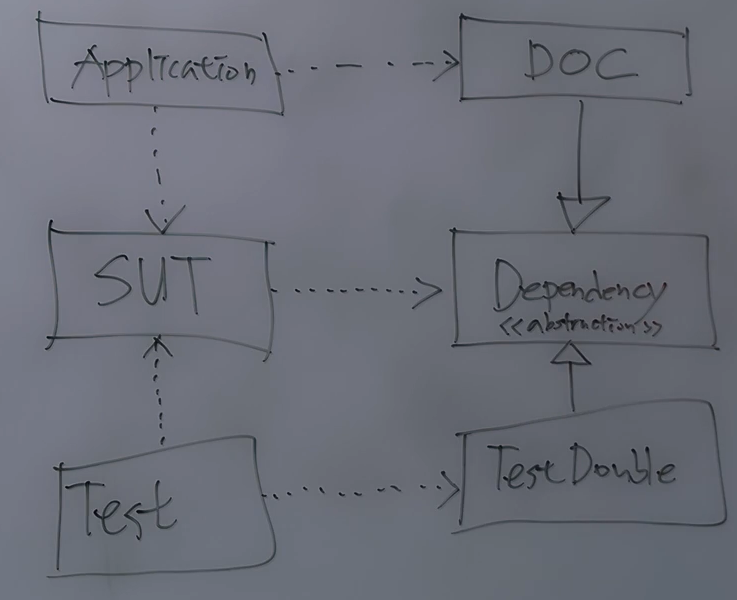 Application
DOC
SUT
Dependency
<<abstruction>>
Test
Test Double